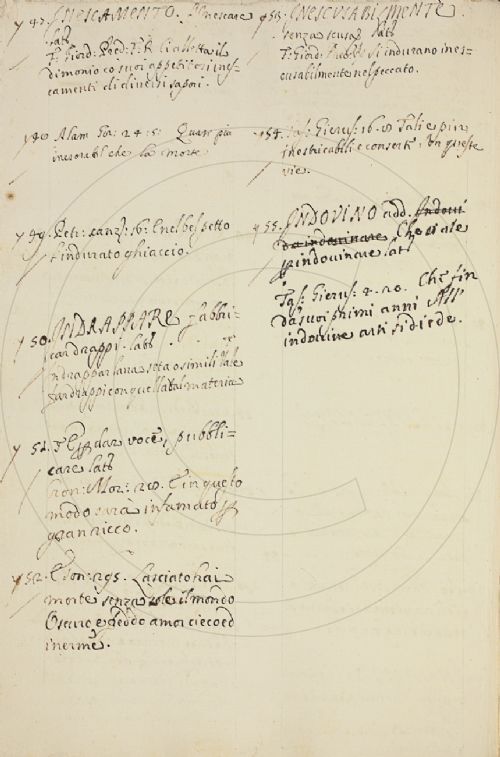 INESCAMENTO. Inescare
lat.
F. Giord. Pred. R. Ci alletta il
dimonio co suoi appetitosi ines-
camenti di diversi sapori.
Alam. Gir. 24. 5. Quasi più
inesorabil che la morte
49. Petr. canz. 16. E nel bel petto
l'indurato ghiaccio.
50. INDRAPPARE. Fabbri-
car drappi. lat.
Indrappar lana seta o simili vale
far drappi con quella tal materia
51. dar voce, pubbli-
care lat.
Mor. E in questo
modo sarà infamato p
gran ricco.
52. E son. 295. Lasciato hai
morte senza sole il mondo
Oscuro e freddo amor cieco ed
inerme.
53. INESCUSABILMENTE.
senza scusa lat.
F. Giord. Si indurano ines-
cusabilmente nel peccato.
54. Tas. Gierus. 16. Tali e più
inestricabili conserte
vie.
55. INDOVINO add. Indovi
da indovinare Che vale
p indovinare lat.
Tas. Gierus. 4. 20. Che fin
da suoi primi anni All'
indovine arti si diede.